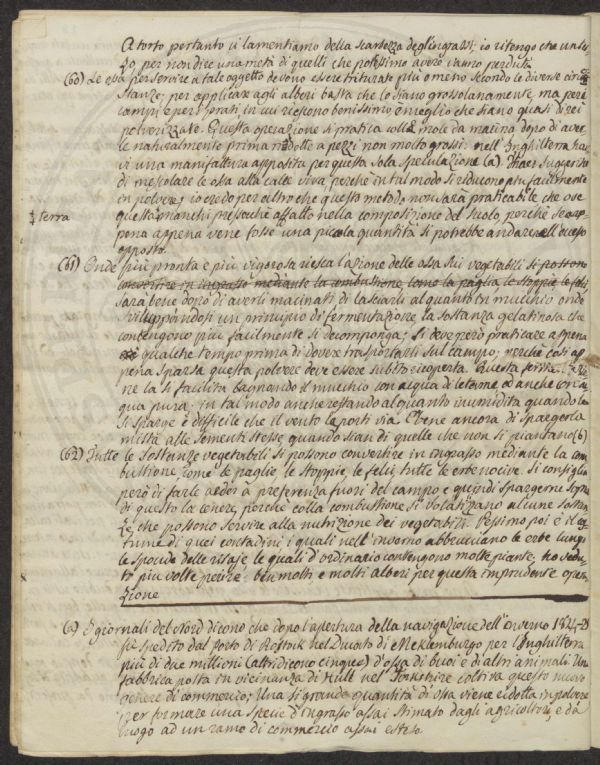 A torto pertanto ci lamentiamo della scarsezza degl'ingrassi; io ritengo che un ter
zo, per non dire una metà di quelli che potressimo avere vanno perduti.
(60) Le ossa per servire a tale oggetto devono essere triturate più o meno secondo le diverse circo
stanze; per applicare agli alberi basta che lo siano grossolanamente, ma pei
campi, e pei prati, in cui riescono benissimo è meglio che siano quasi direi
polverizzate. Questa operazione si pratica colle mole da macina dopo di aver
le naturalmente prima ridotte a pezzi non molto grossi: nell'Inghilterra hav
vi una manifattura apposita per questa sola speculazione (a). Thaer suggerisce
di mescolare le ossa alla calce viva perchè in tal modo si riducono più facilmente
in polvere; io credo per altro che questo metodo non sarà praticabile che ove
‡ terra
questa manchi pressochè affatto nella composizione del suolo, perchè se ap
pena appena vene fosse una piccola quantità si potrebbe andare nell'eccesso
opposto.
(61) Onde più pronta e più vigorosa riesca l'azione delle ossa sui vegetabili si possono
convertire in ingrasso mediante la combustione, come la paglia, le stoppie, le felci
sarà bene dopo di averli macinati di lasciarli alquanto in mucchio onde
sviluppandosi un principio di fermentazione la sostanza gelatinosa che
contengono più facilmente si decomponga; si deve però praticare appena
qualche tempo prima di dovere trasportarli sul campo; perchè così ap
pena sparsa questa polvere deve essere subito ricoperta. Questa fermentazio
ne la si facilita bagnando il mucchio con acqua di letame, od anche con ac
qua pura; in tal modo anche restando alquanto inumidita quando la
si sparge è difficile che il vento la porti via. È bene ancora di spargerla
mista alle sementi stesse, quando sian di quelle che non si piantano (b)
(62) Tutte le sostanze vegetabili si possono convertire in ingrasso mediante la com
bustione, come le paglie, le stoppie, le felci tutte le erbe nocive. Si consiglia
però di farle arder a preferenza fuori del campo e quindi spargerne sopra
di questo la cenere, perchè colla combustione si volatizzano alcune sostan
ze, che possono servire alla nutrizione dei vegetabili. Pessimo poi è il cos
tume di quei contadini i quali nell'inverno abbruciano le erbe lungo
le sponde delle risaje, le quali d'ordinario contengono molte piante, ho vedu
to più volte perire ben molti e molti alberi per questa imprudente opera
zione
(a) I giornali del Nord dicono che dopo l'apertura della navigazione dell'inverno
fu spedito dal porto di Rostock nel Ducato di Mecklemburgo per l'Inghilterra
più di due millioni (altri dicono cinque) d'ossa di buoi e di altri animali. Una
fabbrica posta in vicinanza di Hull nel Yorkshire coltiva questo nuovo
genere di commercio; Una sì grande quantità di ossa viene ridotta in polvere
per formare una specie d'ingrasso assai stimato dagli agricoltori, e dà
luogo ad un ramo di commercio assai esteso.